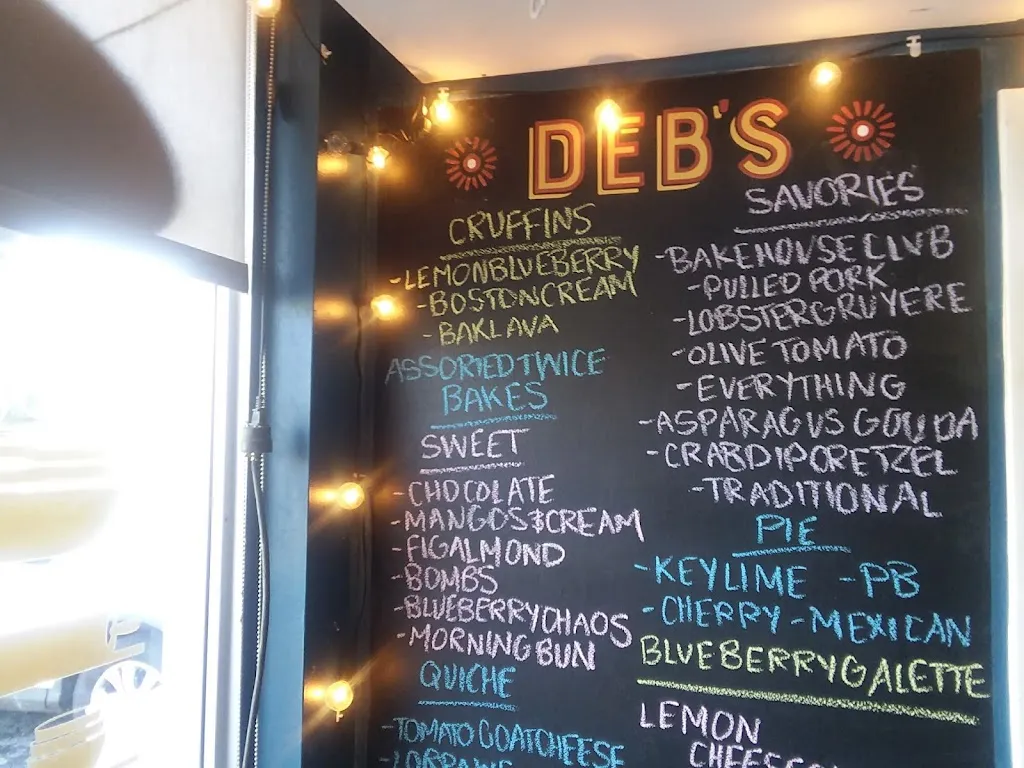 DEB'S
CRUFFINS
-LEMONBLUEBERRY
-BOSTONCREAM
-BAKLAVA
ASSORTED TWICE
BAKES
SWEET
-CHOCOLATE
-MANGOS&CREAM
-FIGALMOND
-BOMBS
-BLUEBERRYCHAOS
-MORNINGBUN
QUICHE
-TOMATO GOATCHEESE
-LORRAINE
SAVORIES
-BAKEHOUSE CLUB
-PULLED PORK
-LOBSTERGRUYERE
-OLIVE TOMATO
-EVERYTHING
-ASPARAGUS GOUDA
-CRABDIPORETZEL
-TRADITIONAL
PIE
-KEYLIME -PB
-CHERRY -MEXICAN
BLUEBERRYGALETTE
LEMON